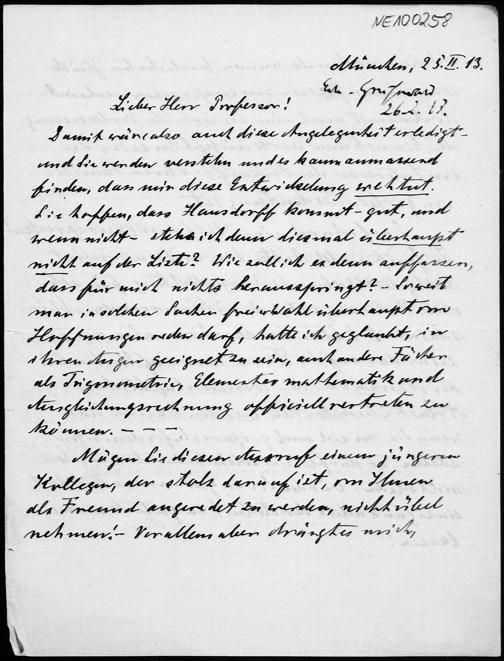 NE100258
München, 25.II.13.
Greifswald
26.2.13.
Lieber Herr Professor!
Damit wäre also auch diese Angelegenheit erledigt -
und Sie werden verstehn und es kaum anmassend
finden, dass mir diese Entwickelung weh tut.
Sie hoffen, dass Hausdorff kommt - gut, und
wenn nicht - steh ich denn diesmal überhaupt
nicht auf der Liste? Wie soll ich es denn auffassen,
dass für mich nichts herausspringt? - Soweit
man in solchen Sachen freier Wahl überhaupt von
Hoffnungen reden darf, hatte ich geglaubt, in
Ihren Augen geeignet zu sein, auch andere Fächer
als Trigonometrie, Elementarmathematik und
Ausgleichungsrechnung officiell vertreten zu
können. — —
Mögen Sie diesen Ausruf einem jüngeren
Kollegen, der stolz darauf ist, von Ihnen
als Freund angeredet zu werden, nicht übel
nehmen! - Vor allem aber drängt es mich,